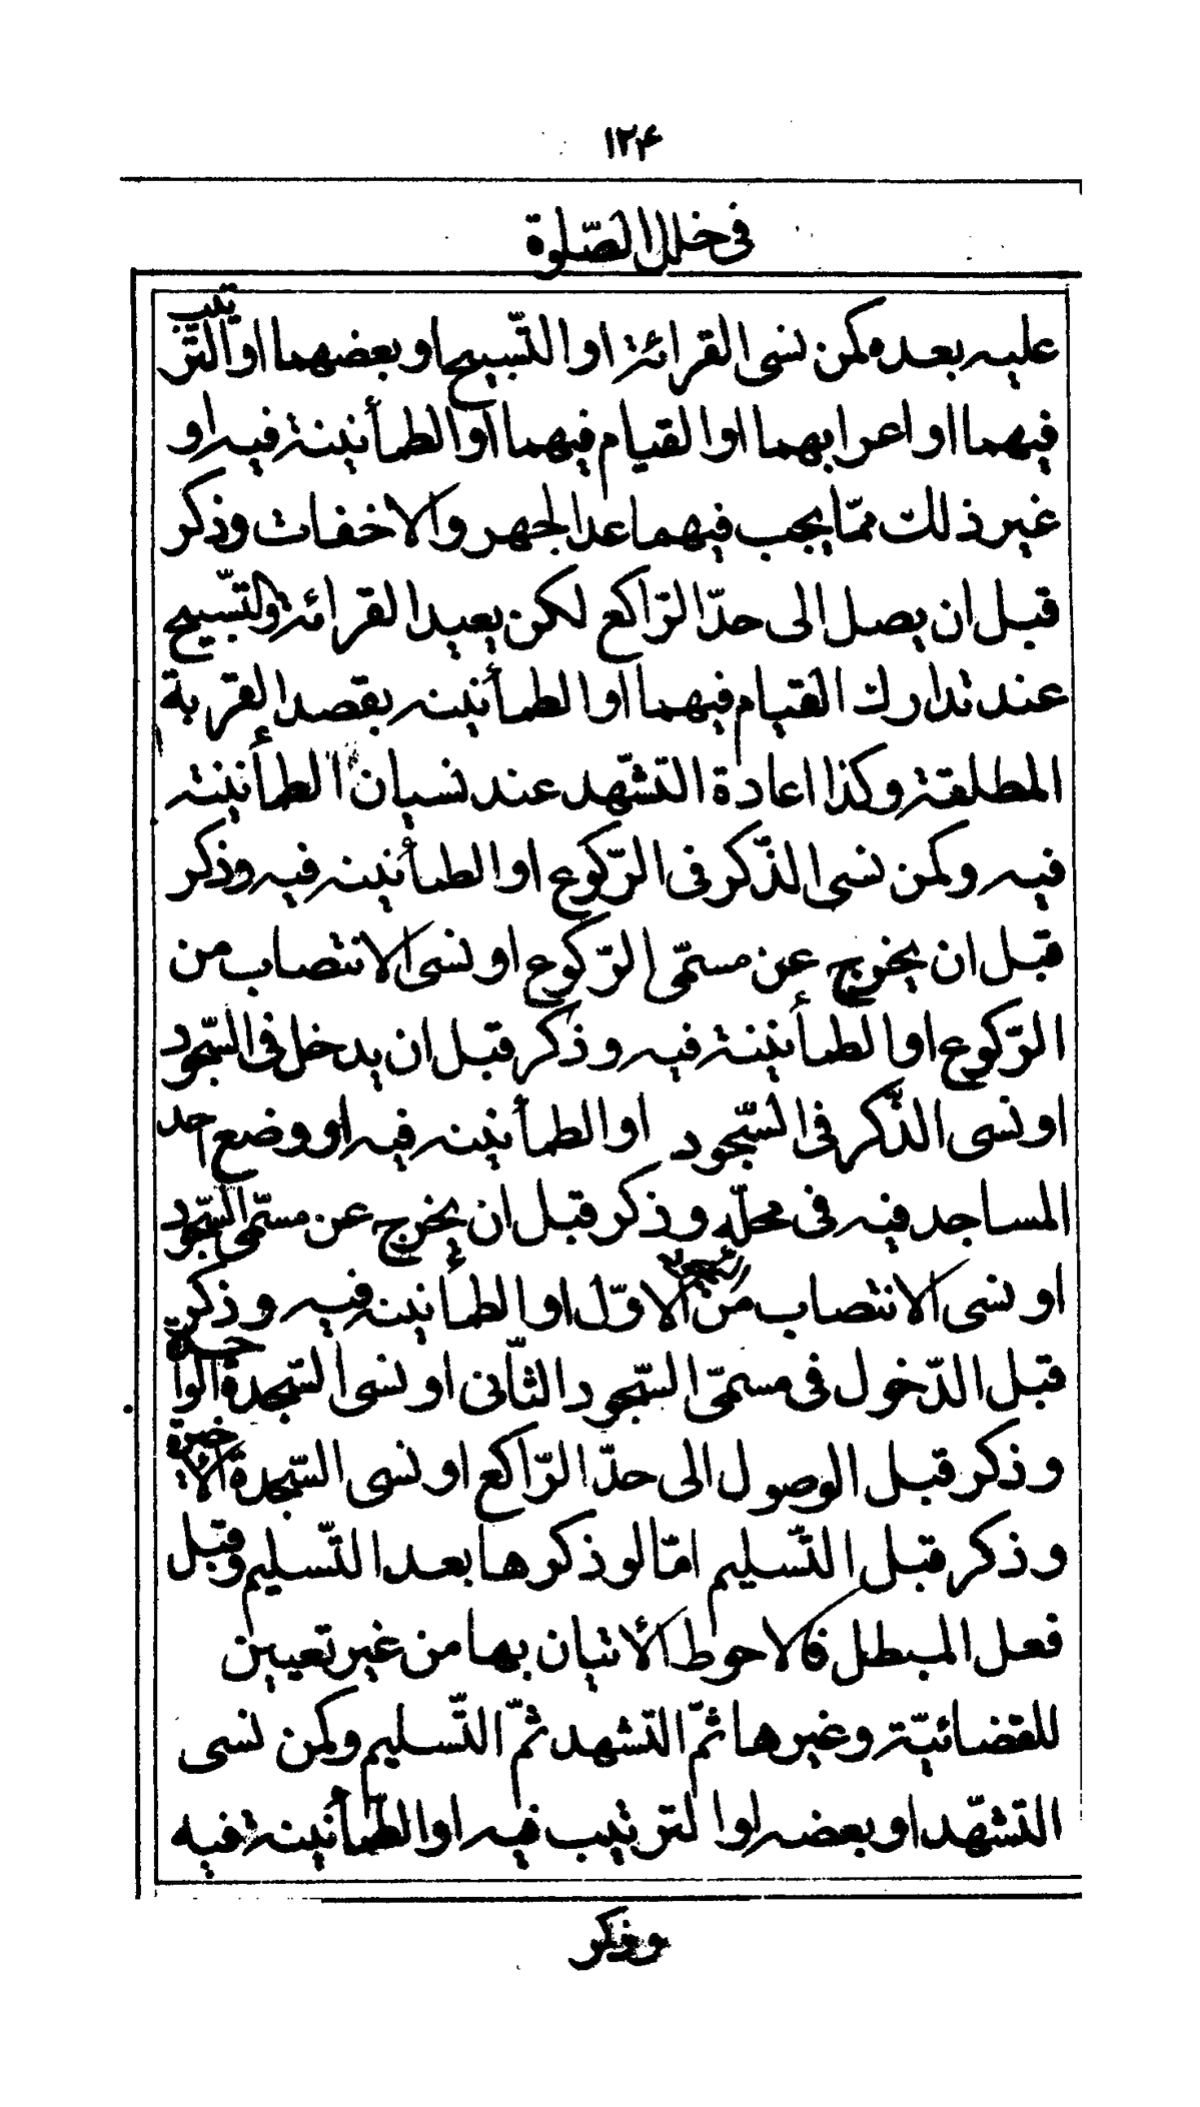 ۱۲۴
فى خلل الصّلوة
عليه بعده كمن نسى القرائة او التّسبيح او بعضهما او التّرتيب
فيهما او اعرابهما او القيام فيهما او الطمأنينة فيه او
غير ذلك ممّا يجب فيهما عدا الجهر والاخفات وذكر
قبل ان يصل الى حدّ الرّاكع لكن يعيد القرائة والتّسبيح
عند تدارك القيام فيهما او الطمأنينه بقصد القربة
المطلقة وكذا اعادة التشّهد عند نسيان الطمأنينة
فيه وكمن نسى الذّكر فى الرّكوع او الطمأنينه فيه وذكر
قبل ان يخرج عن مسمّى الرّكوع او نسى الانتصاب من
الرّكوع او الطمأنينة فيه وذكر قبل ان يدخل فى السّجود
او نسى الذّكر فى السّجود او الطمأنينه فيه او وضع احد
المساجد فيه فى محلّه وذكر قبل ان يخرج عن مسمّى السّجود
او نسى الانتصاب من السّجود الاوّل او الطمأنينه فيه وذكر
قبل الدّخول فى مسمّى السّجود الثّانى او نسى السّجدة الواحدة
وذكر قبل الوصول الى حدّ الرّاكع او نسى السّجدة الأخيرة
وذكر قبل التّسليم امّا لو ذكرها بعد التّسليم وقبل
فعل المبطل فالاحوط الأتيان بها من غير تعيين
للقضائيّة وغيرها ثمّ التشهد ثمّ التّسليم وكمن نسى
التشهّد او بعضه او الترتيب فيه او الطّمأنينة فيه
وذكر